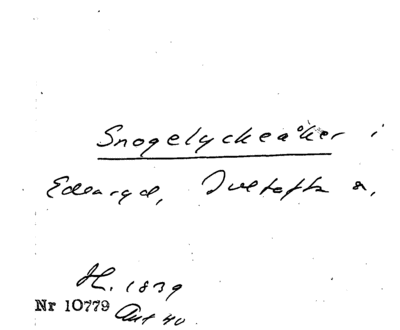 Snogelyckeåker i
Edenryd, Ivetofta s.
H. 1839
Nr 10779 Akt 40